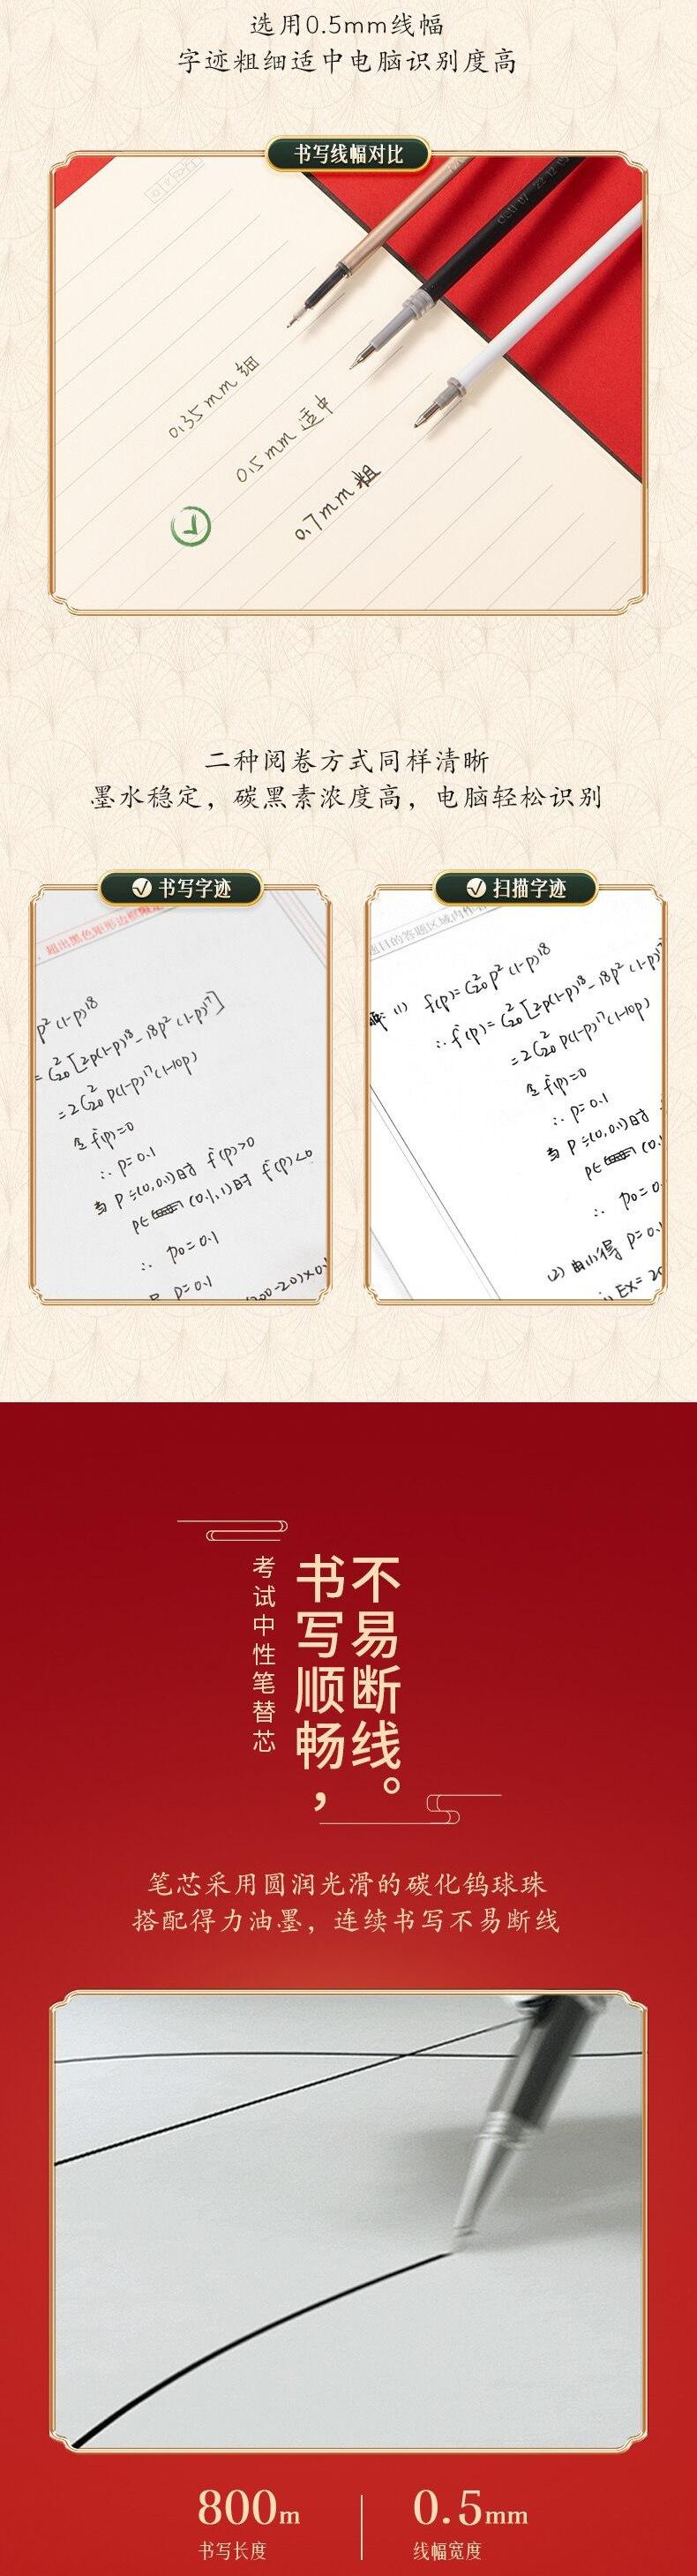 选用0.5mm线幅
字迹粗细适中电脑识别度高
书写线幅对比
deli
0.35mm 细
0.5mm 适中
0.7mm 粗
二种阅卷方式同样清晰
墨水稳定，碳黑素浓度高，电脑轻松识别
书写字迹
超出黑色矩形边框限定
p²(1-p)¹⁸
=C²₂₀[2p(1-p)¹⁸-18p²(1-p)¹⁷]
=2C²₂₀p(1-p)¹⁷(1-10p)
令f'(p)=0
∴p=0.1
当P∈(0,0.1)时 f'(p)>0
p∈(0.1,1)时 f'(p)<0
∴p₀=0.1
p=0.1
扫描字迹
题目的答题区域内作
(1) f(p)=C²₂₀p²(1-p)¹⁸
∴f'(p)=C²₂₀[2p(1-p)¹⁸-18p²(1-p)¹⁷
=2C²₂₀p(1-p)¹⁷(1-10p)
令f'(p)=0
∴p=0.1
当P∈(0,0.1)时
p∈(0.
∴p₀=0.
(2)由(1)得 p=0.
EX=20
不易断线。
书写顺畅，
考试中性笔替芯
笔芯采用圆润光滑的碳化钨球珠
搭配得力油墨，连续书写不易断线
800m
书写长度
0.5mm
线幅宽度